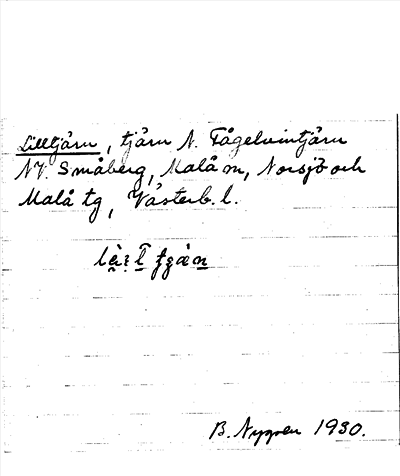 Lilltjärn, tjärn N. Fågelvintjärn
NV. Småberg, Malå sn, Norsjö och
Malå tg, Västerb. l.
B. Nygren 1930.